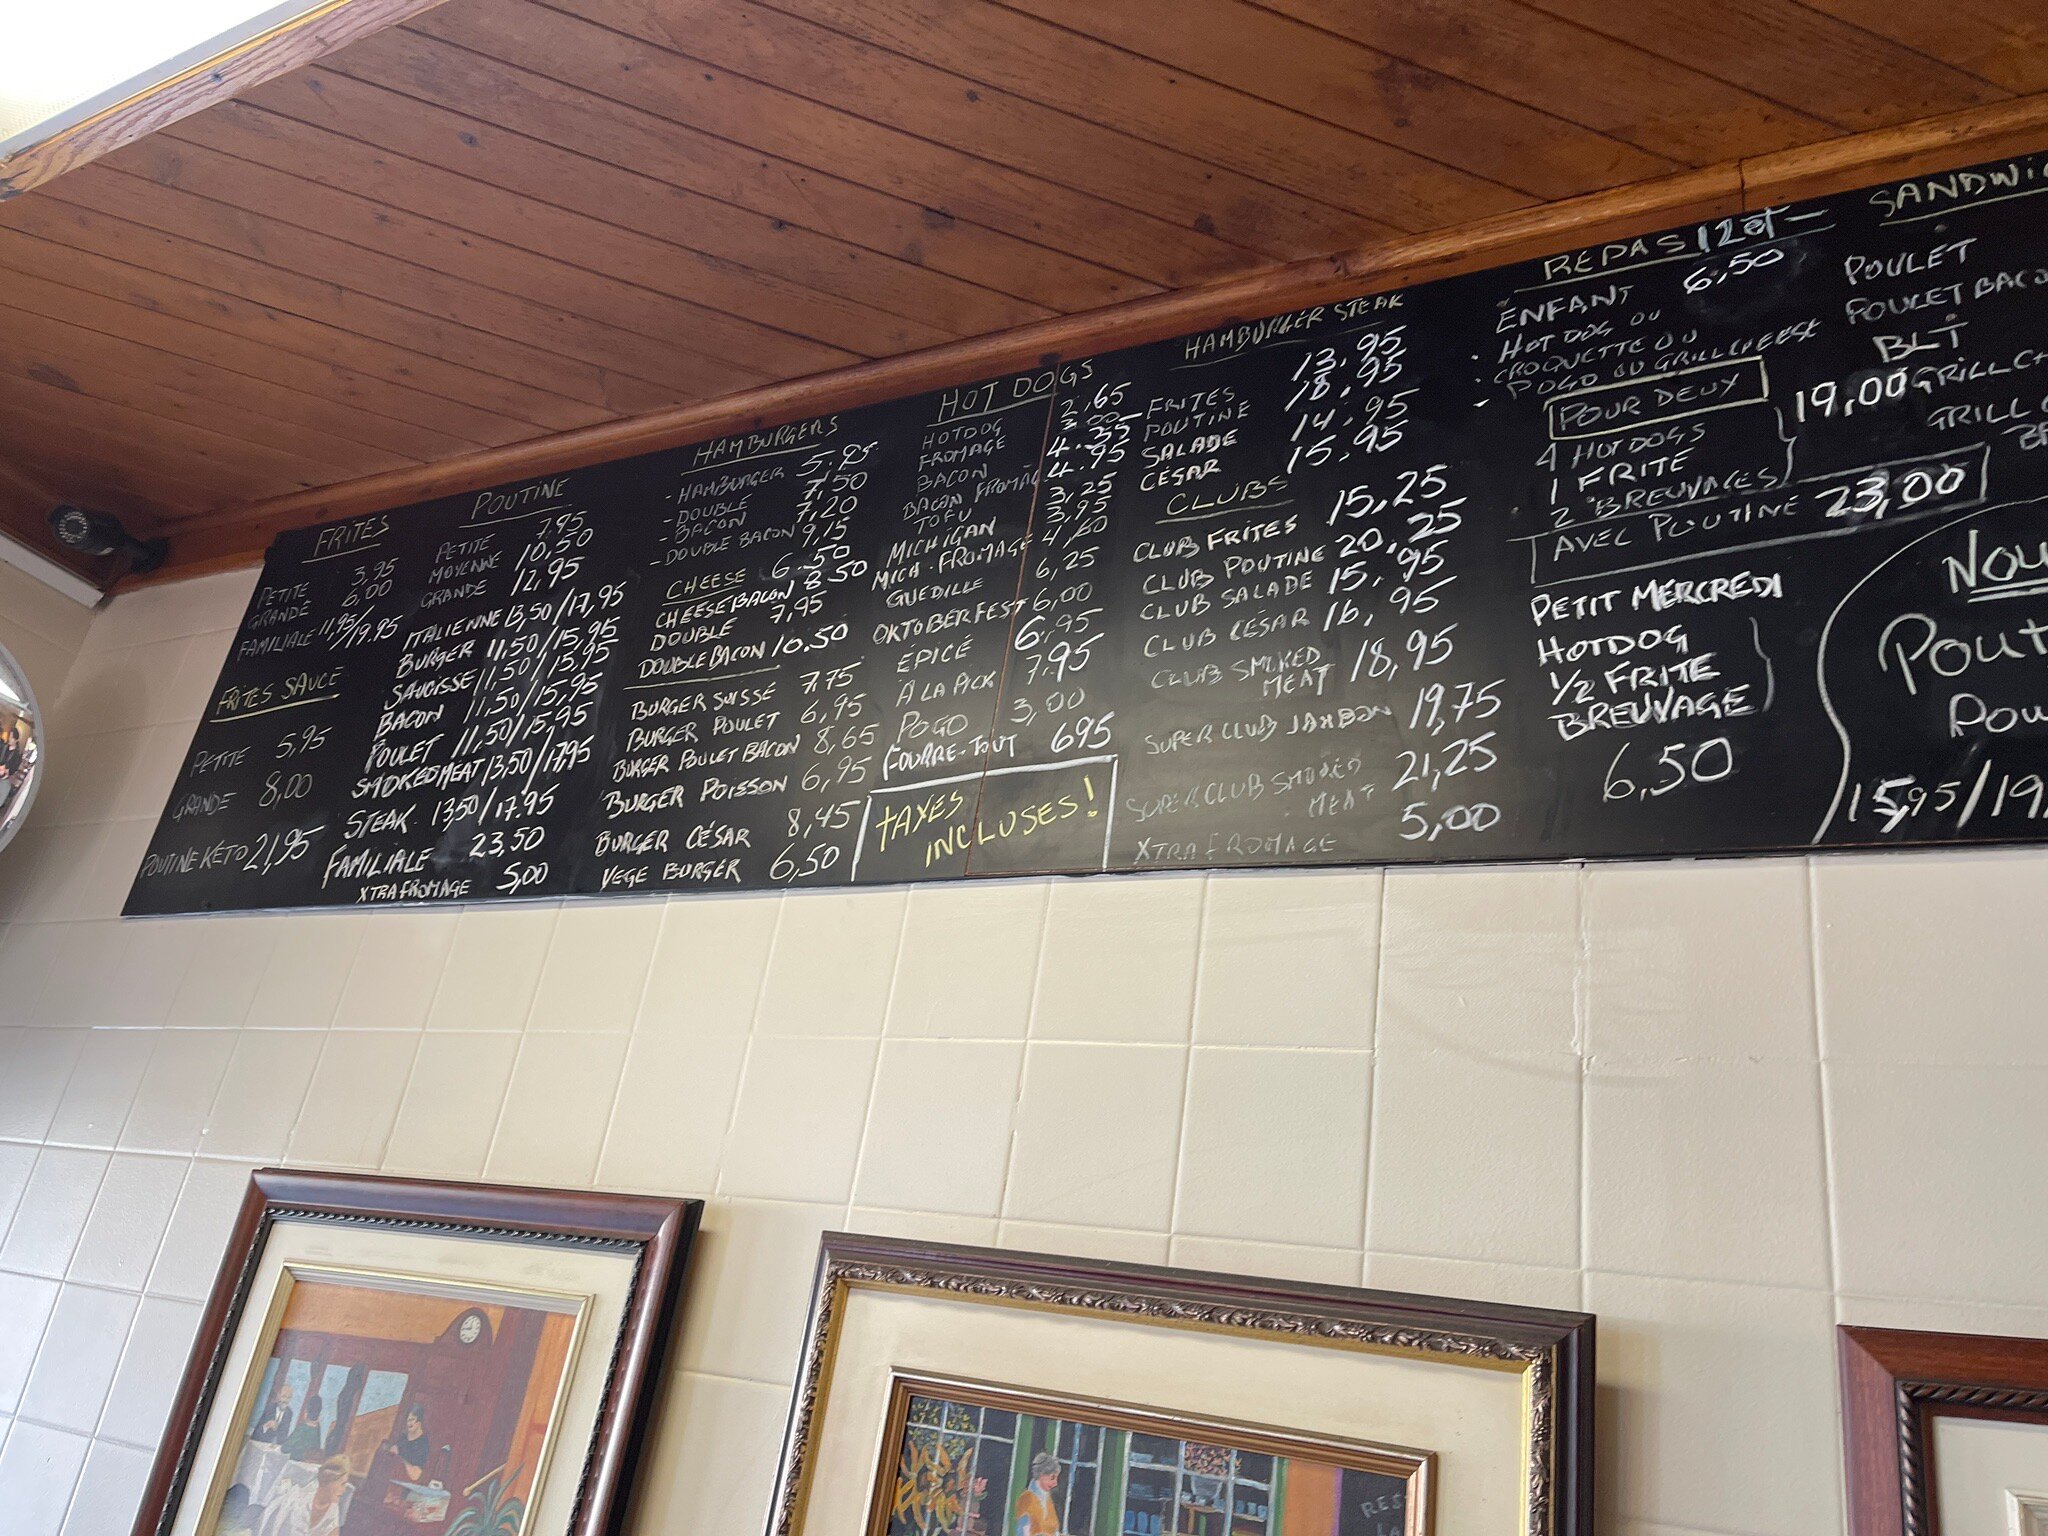 FRITES
PETITE 3,95
GRANDE 6,00
FAMILIALE 11,95/19.95
FRITES SAUCE
PETITE 5,95
GRANDE 8,00
POUTINE KETO 21,95
POUTINE
PETITE 7,95
MOYENNE 10,50
GRANDE 12,95
ITALIENNE 13,50/17,95
BURGER 11,50/15,95
SAUCISSE 11,50/15,95
BACON 11,50/15,95
POULET 11,50/15,95
SMOKED MEAT 13,50/17,95
STEAK 13,50/17.95
FAMILIALE 23,50
XTRA FROMAGE 5,00
HAMBURGERS
- HAMBURGER 5,95
- DOUBLE 7,50
- BACON 7,20
- DOUBLE BACON 9,15
CHEESE 6.50
CHEESE BACON 8.50
DOUBLE 7,95
DOUBLE BACON 10.50
BURGER SUISSE 7.75
BURGER POULET 6,95
BURGER POULET BACON 8,65
BURGER POISSON 6,95
BURGER CÉSAR 8,45
VEGE BURGER 6,50
HOT DOGS
HOTDOG 2,65
FROMAGE
BACON 4.35
BACON FROMAGE 4.95
TOFU 3,25
MICHIGAN 3,95
MICH. FROMAGE 4,60
GUEDILLE 6,25
OKTOBERFEST 6,00
ÉPICÉ 6.95
À LA PICK 7.95
POGO 3,00
FOURRE-TOUT 695
TAXES
INCLUSES!
HAMBURGER STEAK
FRITES 13.95
POUTINE 18,95
SALADE 14.95
CÉSAR 15,95
CLUBS
CLUB FRITES 15,25
CLUB POUTINE 20,25
CLUB SALADE 15,95
CLUB CÉSAR 16,95
CLUB SMOKED
MEAT 18,95
SUPER CLUB JAMBON 19,75
SUPER CLUB SMOKED
MEAT 21,25
XTRA FROMAGE 5,00
REPAS 12et-
ENFANT 6,50
· HOT DOG OU
· CROQUETTE OU
- POGO OU GRILL CHEESE
POUR DEUX
4 HOTDOGS
1 FRITE
2 BREUVAGES
19,00
AVEC POUTINE 23,00
PETIT MERCREDI
HOTDOG
1/2 FRITE
BREUVAGE
6,50
SANDWIC
POULET
POULET BACO
BLT
GRILL CH
GRILL
NOU
POUT
POU
15,95/19,